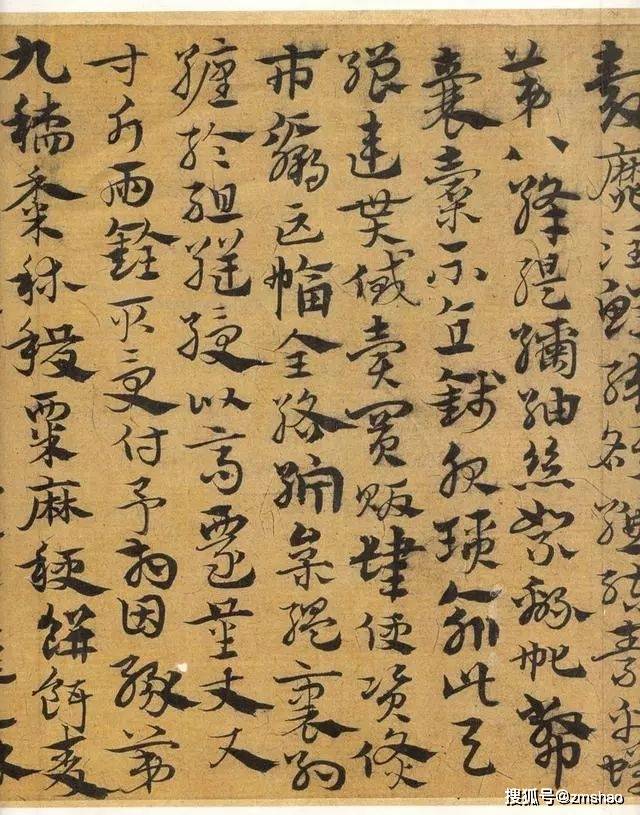 靡鮮素帛蟬
第八絳緹繭紬絲絮綿帊幣
囊橐不直錢服瑣緰此與
繒連貰貸賣買販肆便資貨
市贏匹幅全絡紵枲縕裹約
纏綸組縌綬以高遷量丈尺
寸斤兩銓取受付予相因緣第
九稻黍秫稷粟麻稉餅餌麦
搜狐号@zmshao